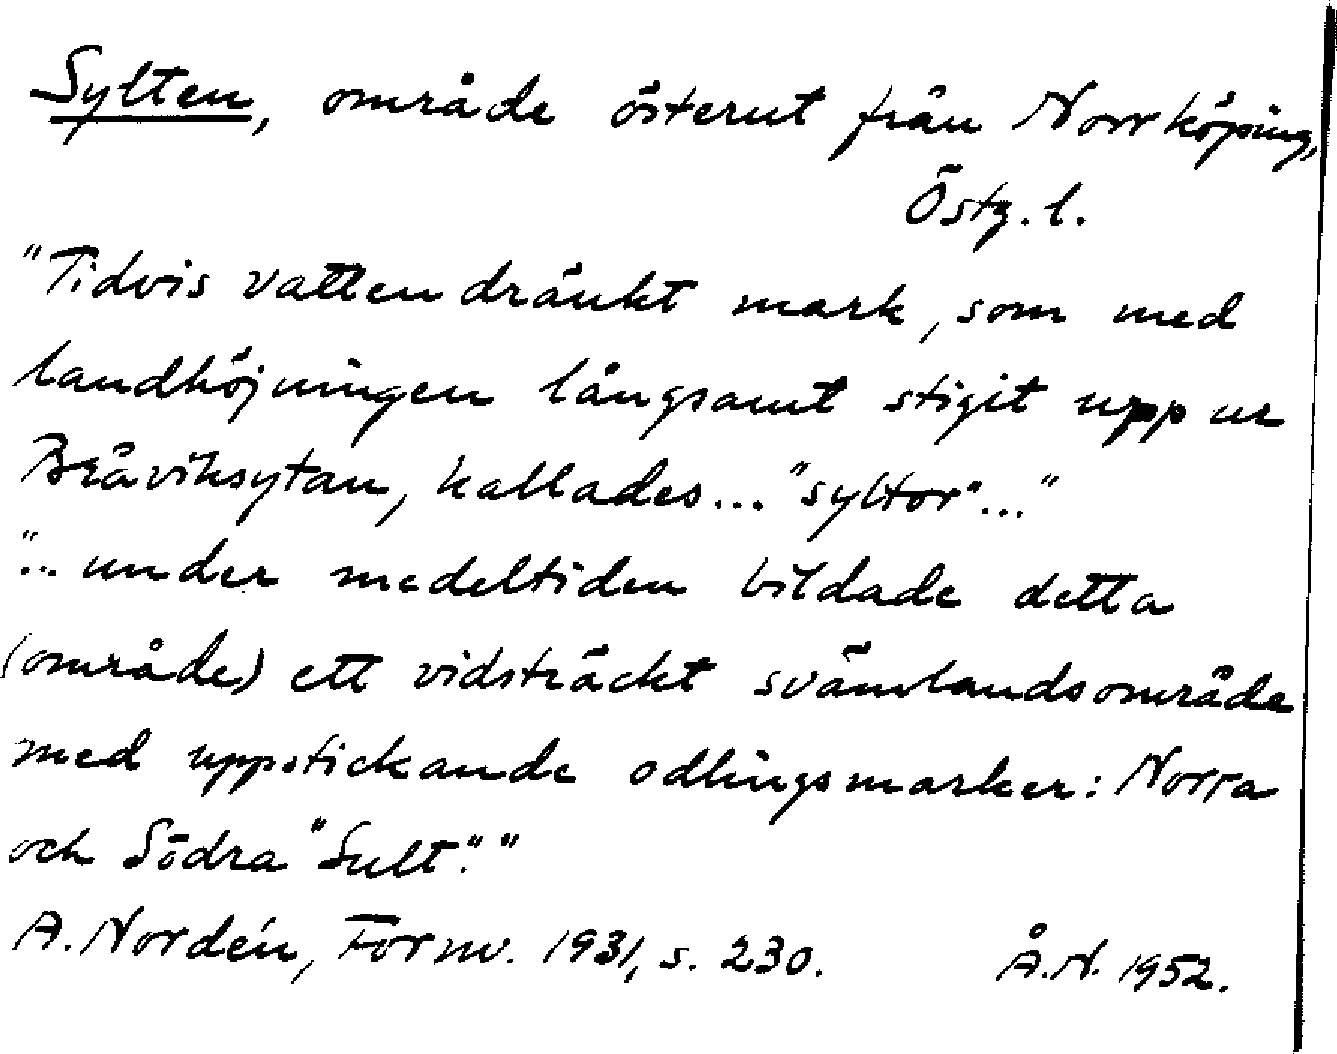 Sylten, område österut från Norrköping,
Östg. l.
"Tidvis vattendränkt mark, som med
landhöjningen långsamt stigit upp ur
Bråviksytan, kallades... "syltor"..."
"... under medeltiden bildade detta
(område) ett vidsträckt svämlandsområde
med uppstickande odlingsmarker: Norra
och Södra "Sult"."
A. Nordén, Fornv. 1931, s. 230. Å.N. 1952.